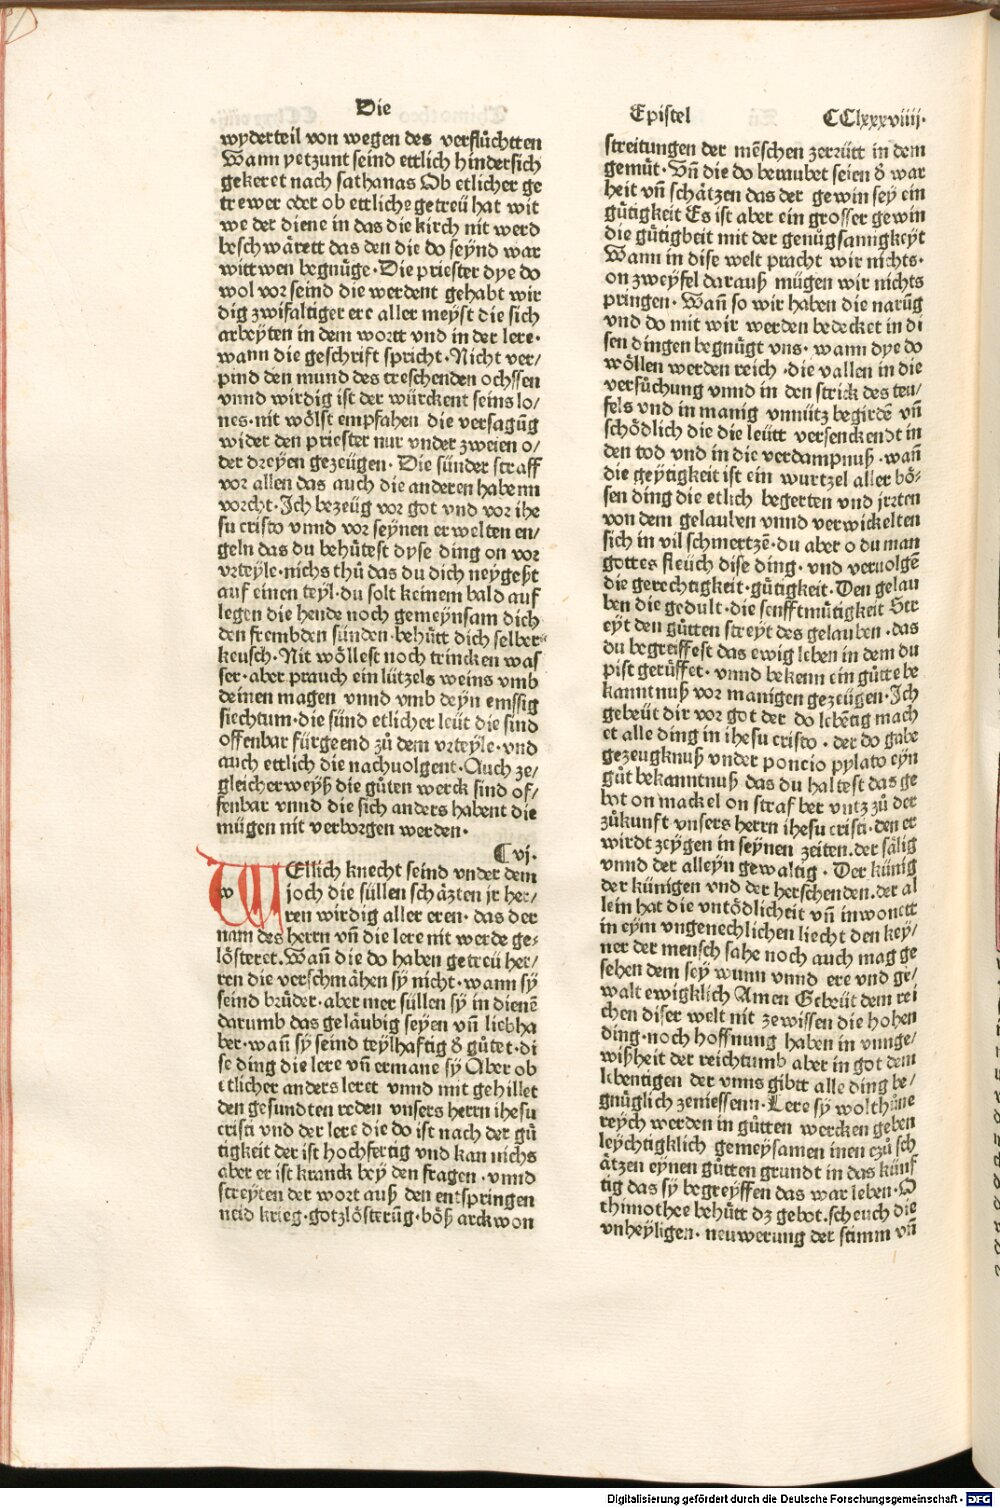 Die
wyderteil von wegen des verflůchtten
Wann yetzunt seind ettlich hindersich
gekeret nach sathanas Ob etlicher ge
trewer oder ob ettliche getreü hat wit
we der diene in das die kirch nit werd
beschwärett das den die do seynd war
wittwen begnüge·Die priester dye do
wol vor seind die werdent gehabt wir
dig zwifaltiger ere aller meyst die sich
arbeyten in dem wortt vnd in der lere·
wann die geschrift spricht·Nicht ver/
pind den mund des treschenden ochssen
vnnd wirdig ist der würckent seins lo/
nes·nit wölst empfahen die versagūg
wider den priester nur vnder zweien o/
der dreyen gezeügen· Die sünder straff
vor allen das auch die anderen habenn
vorcht·Ich bezeüg vor got vnd vor ihe
su cristo vnnd vor seynen erwelten en/
geln das du behůtest dyse ding on vor
vrteyle·nichs thů das du dich neygest
auf einen teyl·du solt keinem bald auf
legen die hende noch gemeynsam dich
den frembden sünden·behůtt dich selber
keusch·Nit wöllest noch trincken was
ser·aber prauch ein lützels weins vmb
deinen magen vnnd vmb deyn emssig
siechtum·die sünd etlicher leüt die sind
offenbar fürgeend zů dem vrteyle·vnd
auch ettlich die nachuolgent·Auch ze/
gleicherweyß die gůten werck sind of/
fenbar vnnd die sich anders habent die
mügen nit verborgen werden·
Cvj·
w WEllich knecht seind vnder dem
joch die süllen schäzten jr her/
ren wirdig aller eren· das der
nam des herrn vn̄ die lere nit werde ge-
lösteret.Wan̄ die do haben getreü her/
ren die verschmähen sy nicht·wann sy
seind brüder·aber mer süllen sy in dienē
darumb das geläubig seyen vn̄ liebha
ber·wan̄ sy seind teylhaftig d gůtet·di
se ding die lere vn̄ ermane sy Aber ob
etlicher anders leret vnnd mit gehillet
den gesundten reden vnsers herrn ihesu
cristi vnd der lere die do ist nach der gů
tigkeit der ist hochfertig vnd kan nichs
aber er ist kranck bey den fragen·vnnd
streyten der wort auß den entspringen
neid krieg·gotzlösterūg·böß arckwon
Epistel CClxxxviiij·
streitungen der mēschen zerrütt in dem
gemüt·Vn̄ die do beraubet seien d war
heit vn̄ schätzen das der gewin sey ein
gůtigkeit Es ist aber ein grosser gewin
die gůtigkeit mit der genůgsamigkeyt
Wann in dise welt pracht wir nichts·
on zweyfel darauß mügen wir nichts
pringen· Wan̄ so wir haben die narūg
vnd do mit wir werden bedecket in di
sen dingen begnügt vns· wann dye do
wöllen werden reich ·die vallen in die
versůchung vnnd in den strick des teu/
fels vnd in manig vnnütz begirdē vn̄
schödlich die die leütt versenckendt in
den tod vnd in die verdampnuß·wan̄
die geytigkeit ist ein wurtzel aller bö-
sen ding die etlich begerten vnd jrrten
von dem gelauben vnnd verwickelten
sich in vil schmertzē·du aber o du man
gottes fleuch dise ding· vnd veruolgē
die gerechtigkeit·gůtigkeit·Den gelau
ben die gedult·die senfftmůtigkeit Str
eyt den gůtten streyt des gelauben·das
du begreiffest das ewig leben in dem du
pist gerůffet·vnnd bekenn ein gůtte be
kanntnuß vor manigen gezeügen·Ich
gebeüt dir vor got der do lebētig mach
et alle ding in ihesu cristo·der do gabe
gezeugknuß vnder poncio pylato eyn
gůt bekanntnuß das du haltest das ge
bot on mackel on strafber vntz zů der
zůkunft vnsers herrn ihesu cristi·den er
wirdt zeygen in seynen zeiten.der sälig
vnnd der alleyn gewaltig·Der künig
der künigen vnd der herschenden.der al
lein hat die vntödlicheit vn̄ inwonett
in eym vngenechlichen liecht den key/
ner der mensch sahe noch auch mag ge
sehen dem sey wunn vnnd ere vnd ge/
walt ewigklich Amen Gebeüt dem rei
chen diser welt nit zewissen die hohen
ding·noch hoffnung haben in vnnge/
wißheit der reichtumb aber in got dem
lebentigen der vnns gibtt alle ding be/
gnüglich zeniessenn·Lere sy wolthůne
reych werden in gůtten wercken geben
leychtigklich gemeysamen inen czů sch
ätzen eynen gůtten grundt in das künf
tig das sy begreyffen das war leben·O
thimothee behůtt dz gebot.scheuch die
vnheyligen· neuwerung der stimm vn̄
Digitalisierung gefördert durch die Deutsche Forschungsgemeinschaft - DFG